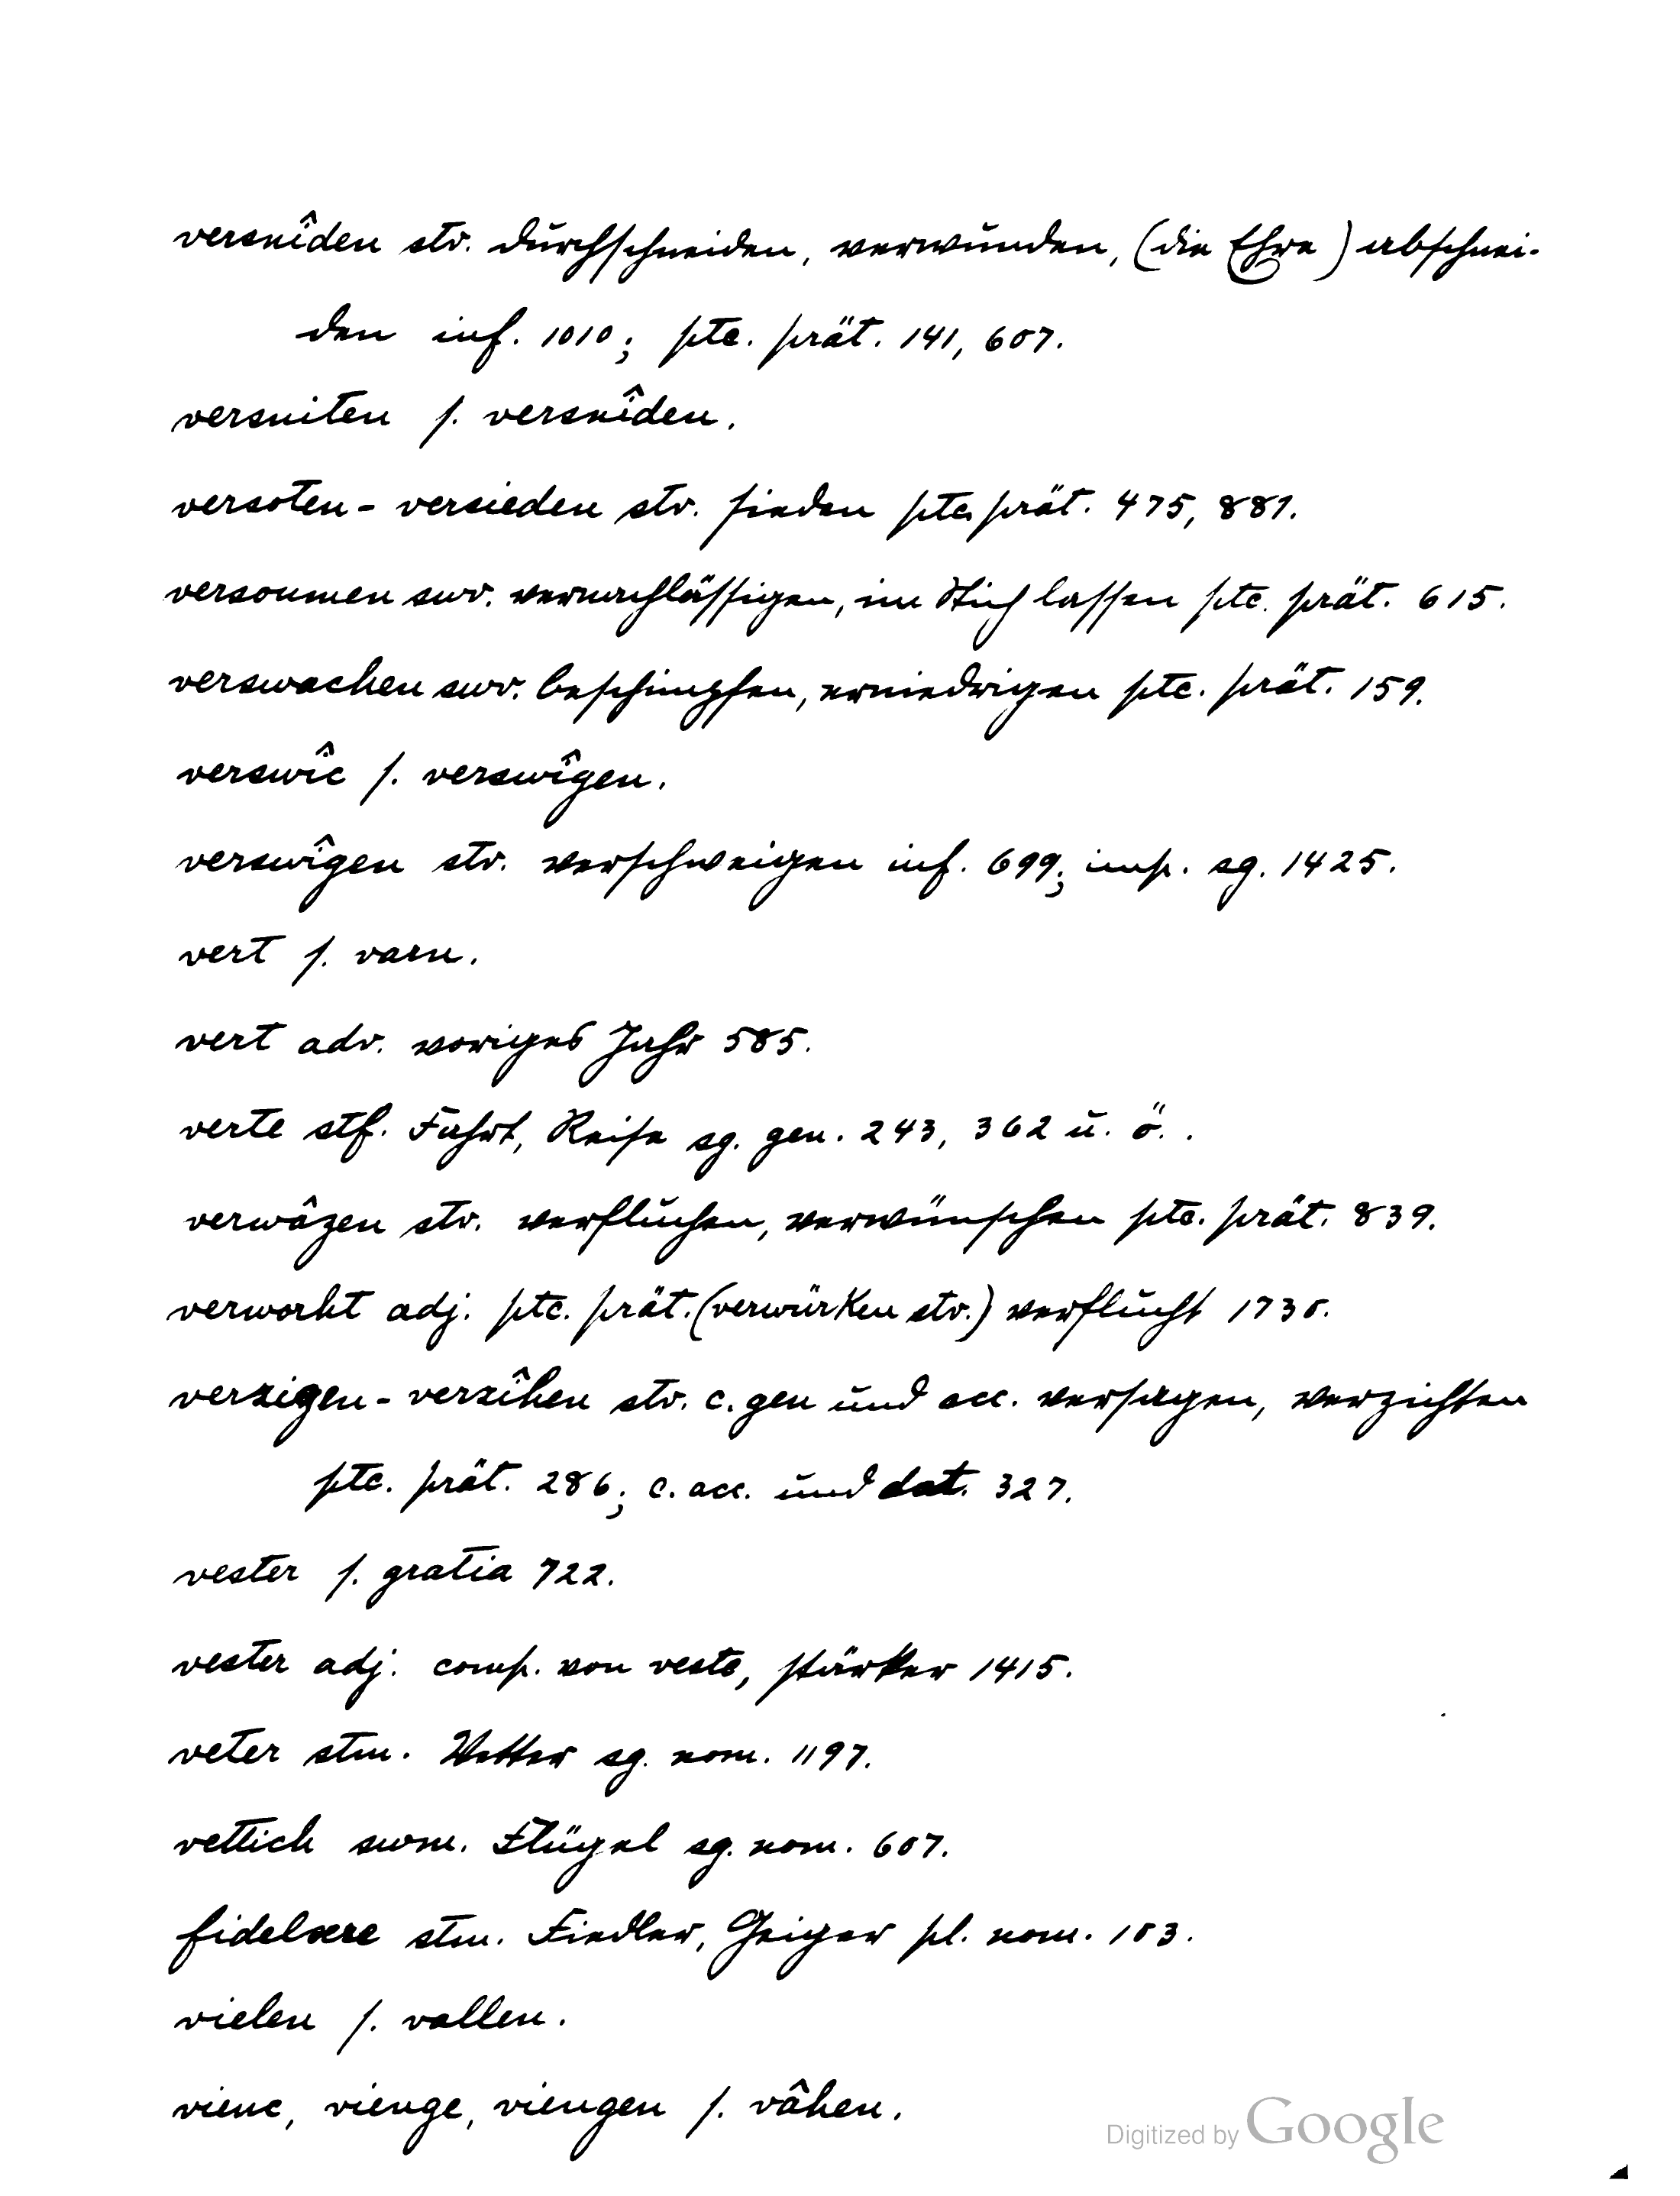 versnîden stv. durchschneiden, verwunden, (die Ehre) abschnei-
den inf. 1010; ptc. prät. 141, 607.
versniten s. versnîden.
versoten - versieden stv. sieden ptc. prät. 475, 881.
versoumen swv. vernachlässigen, im Stich lassen ptc. prät. 615.
verswachen swv. beschimpfen, erniedrigen ptc. prät. 159.
verswîc s. verswîgen.
verswîgen stv. verschweigen inf. 699; imp. sg. 1425.
vert s. varn.
vert adv. voriges Jahr 585.
verte stf. Fahrt, Reise sg. gen. 243, 362 u. ö. .
verwâzen stv. verfluchen, verwünschen ptc. prät. 839.
verworht adj. ptc. prät. (verwürken stv.) verflucht 1730.
verzigen - verzîhen stv. c. gen und acc. versagen, verzichten
ptc. prät. 286; c. acc. und dat. 327.
vester s. gratia 722.
vester adj. comp. von veste, stärker 1415.
veter stm. Vetter sg. nom. 1197.
vettich swm. Flügel sg. nom. 607.
fidelære stm. Fiedler, Geiger pl. nom. 103.
vielen s. vallen.
vienc, vienge, viengen s. vâhen.
Digitized by Google